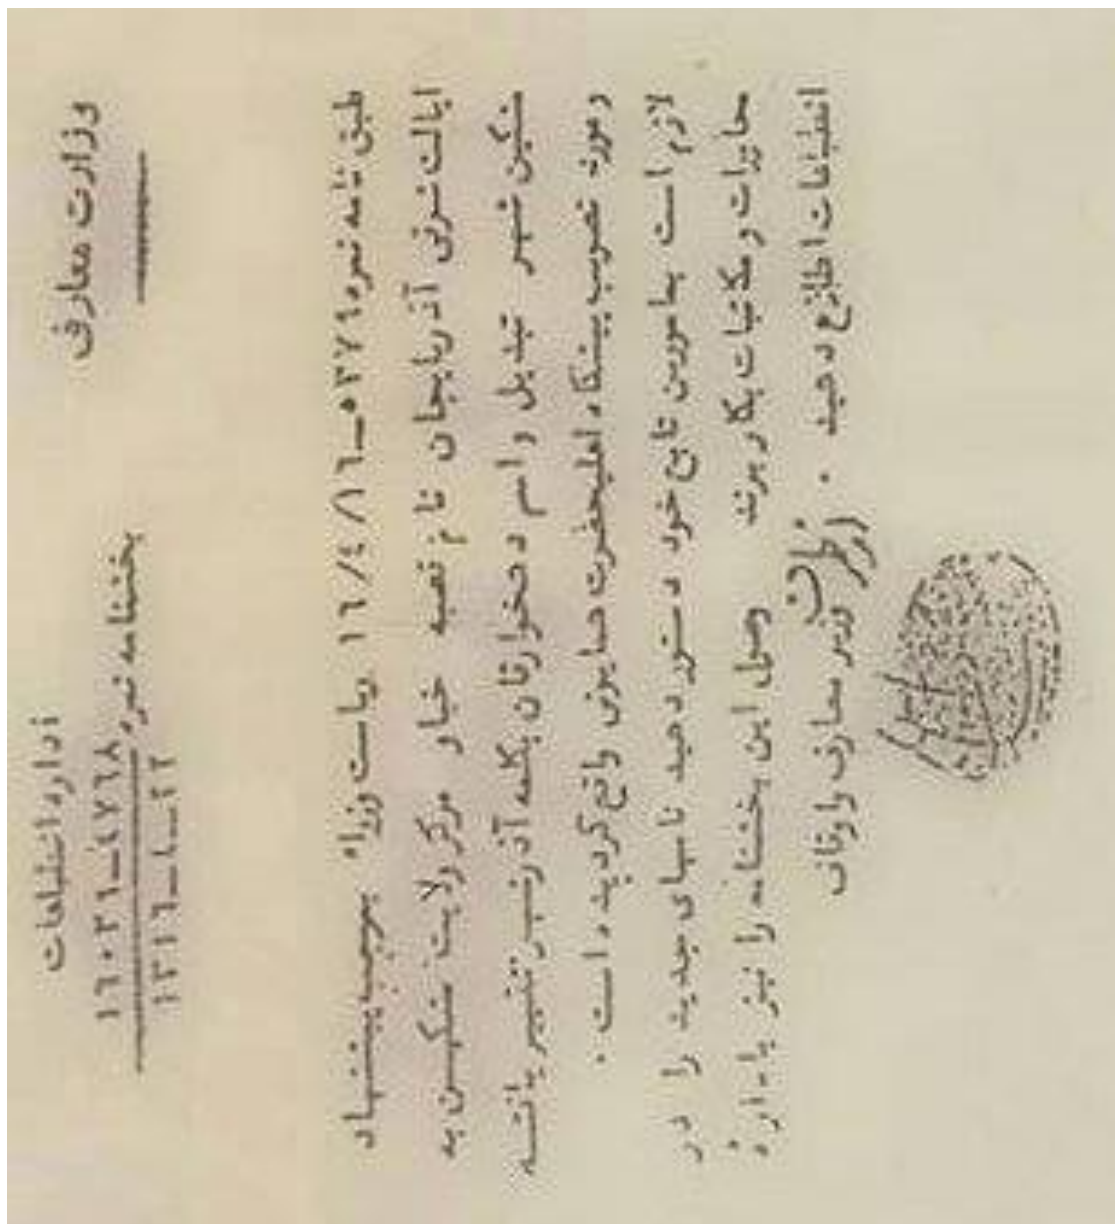 وزارت معارف
اداره انتطباعات
بخشنامه نمره ۴۷۶۸-۱۶۰۳۱
۲۲-۱-۱۳۱۶
طبق نامه نمره ۵۳۷۴-۱۶/۴/۱۶ ریاست وزراء بموجب پیشنهاد
ایالت شرقی آذربایجان نام قصبه خیاو مرکز ولایت مشگین به
مشگین شهر تبدیل و اسم دهخوارقان بکلمه آذرشهر تغییر یافته
و مورد تصویب پیشگاه اعلیحضرت همایونی واقع گردیده است .
لازم است بمامورین تابع خود دستور دهید نامهای جدید را در
مخابرات و مکتبات بکار برند وصول این بخشنامه را نیز باداره
انطباعات اطلاع دهید .
وزیر معارف و اوقاف